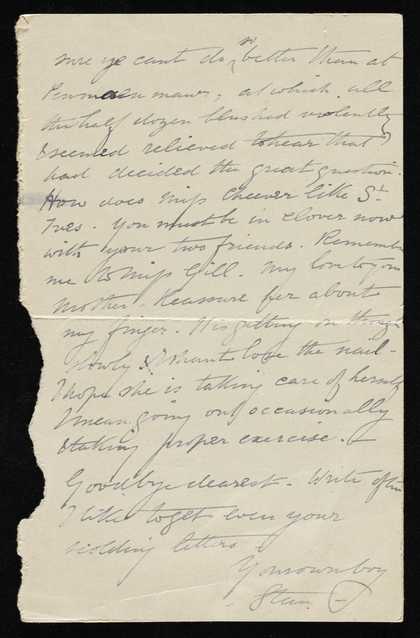 sure ye cant do no better than at
Penmaen mawr, at which all
the half dozen blushed violently
& seemed relieved to hear that I
had decided the great question.
How does Miss Cheever like St
Ives. You must be in clover now
with your two friends. Remember
me to Miss Gill. My love to your
mother. Reassure her about
my finger. It is getting on though
slowly & I shant lose the nail -
I hope she is taking care of herself
I mean going out occasionally
& taking proper exercise.
Goodbye dearest - Write often
I like to get even your
scolding letters
Your own boy